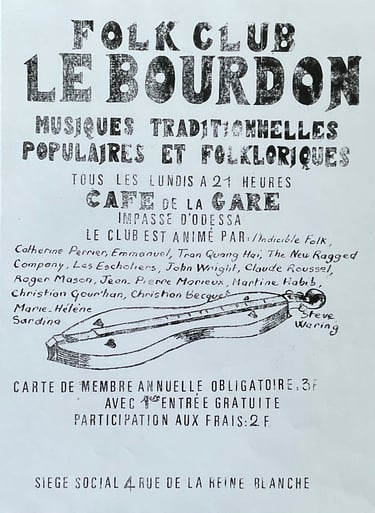 FOLK CLUB
LE BOURDON
MUSIQUES TRADITIONNELLES
POPULAIRES ET FOLKLORIQUES
TOUS LES LUNDIS A 21 HEURES
CAFE DE LA GARE
IMPASSE D'ODESSA
LE CLUB EST ANIMÉ PAR: l'Indicible Folk,
Catherine Perrier, Emmanuel, Tran Quang Hai, The New Ragged
Company, Les Escholiers, John Wright, Claude Roussel,
Roger Mason, Jean-Pierre Morieux, Martine Habib,
Christian Gour'han, Christion Becquet
Marie-Hélène
Sardina
Steve
Waring
CARTE DE MEMBRE ANNUELLE OBLIGATOIRE, 3F
AVEC 1ère ENTRÉE GRATUITE
PARTICIPATION AUX FRAIS: 2F
SIEGE SOCIAL 4 RUE DE LA REINE BLANCHE